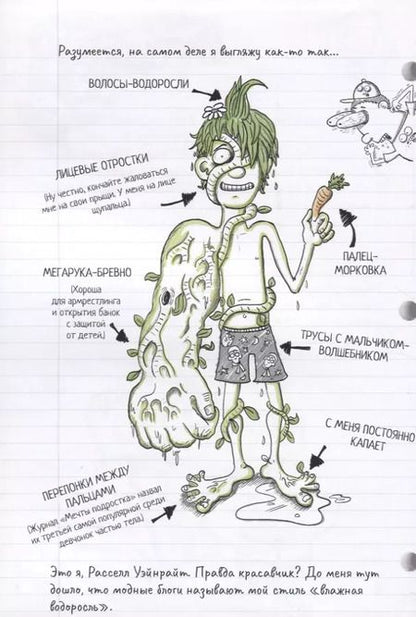 Разумеется, на самом деле я выгляжу как-то так...
ВОЛОСЫ-ВОДОРОСЛИ
ЛИЦЕВЫЕ ОТРОСТКИ
(Ну честно, кончайте жаловаться
мне на свои прыщи. У меня на лице
щупальца.)
ПАЛЕЦ-
МОРКОВКА
МЕГАРУКА-БРЕВНО
(Хороша
для армрестлинга
и открытия банок
с защитой
от детей.)
ТРУСЫ С МАЛЬЧИКОМ-
ВОЛШЕБНИКОМ
С МЕНЯ ПОСТОЯННО
КАПАЕТ
ПЕРЕПОНКИ МЕЖДУ
ПАЛЬЦАМИ
(Журнал «Мечты подростка» назвал
их третьей самой популярной среди
девчонок частью тела.)
Это я, Расселл Уэйнрайт. Правда красавчик? До меня тут
дошло, что модные блоги называют мой стиль «влажная
водоросль».